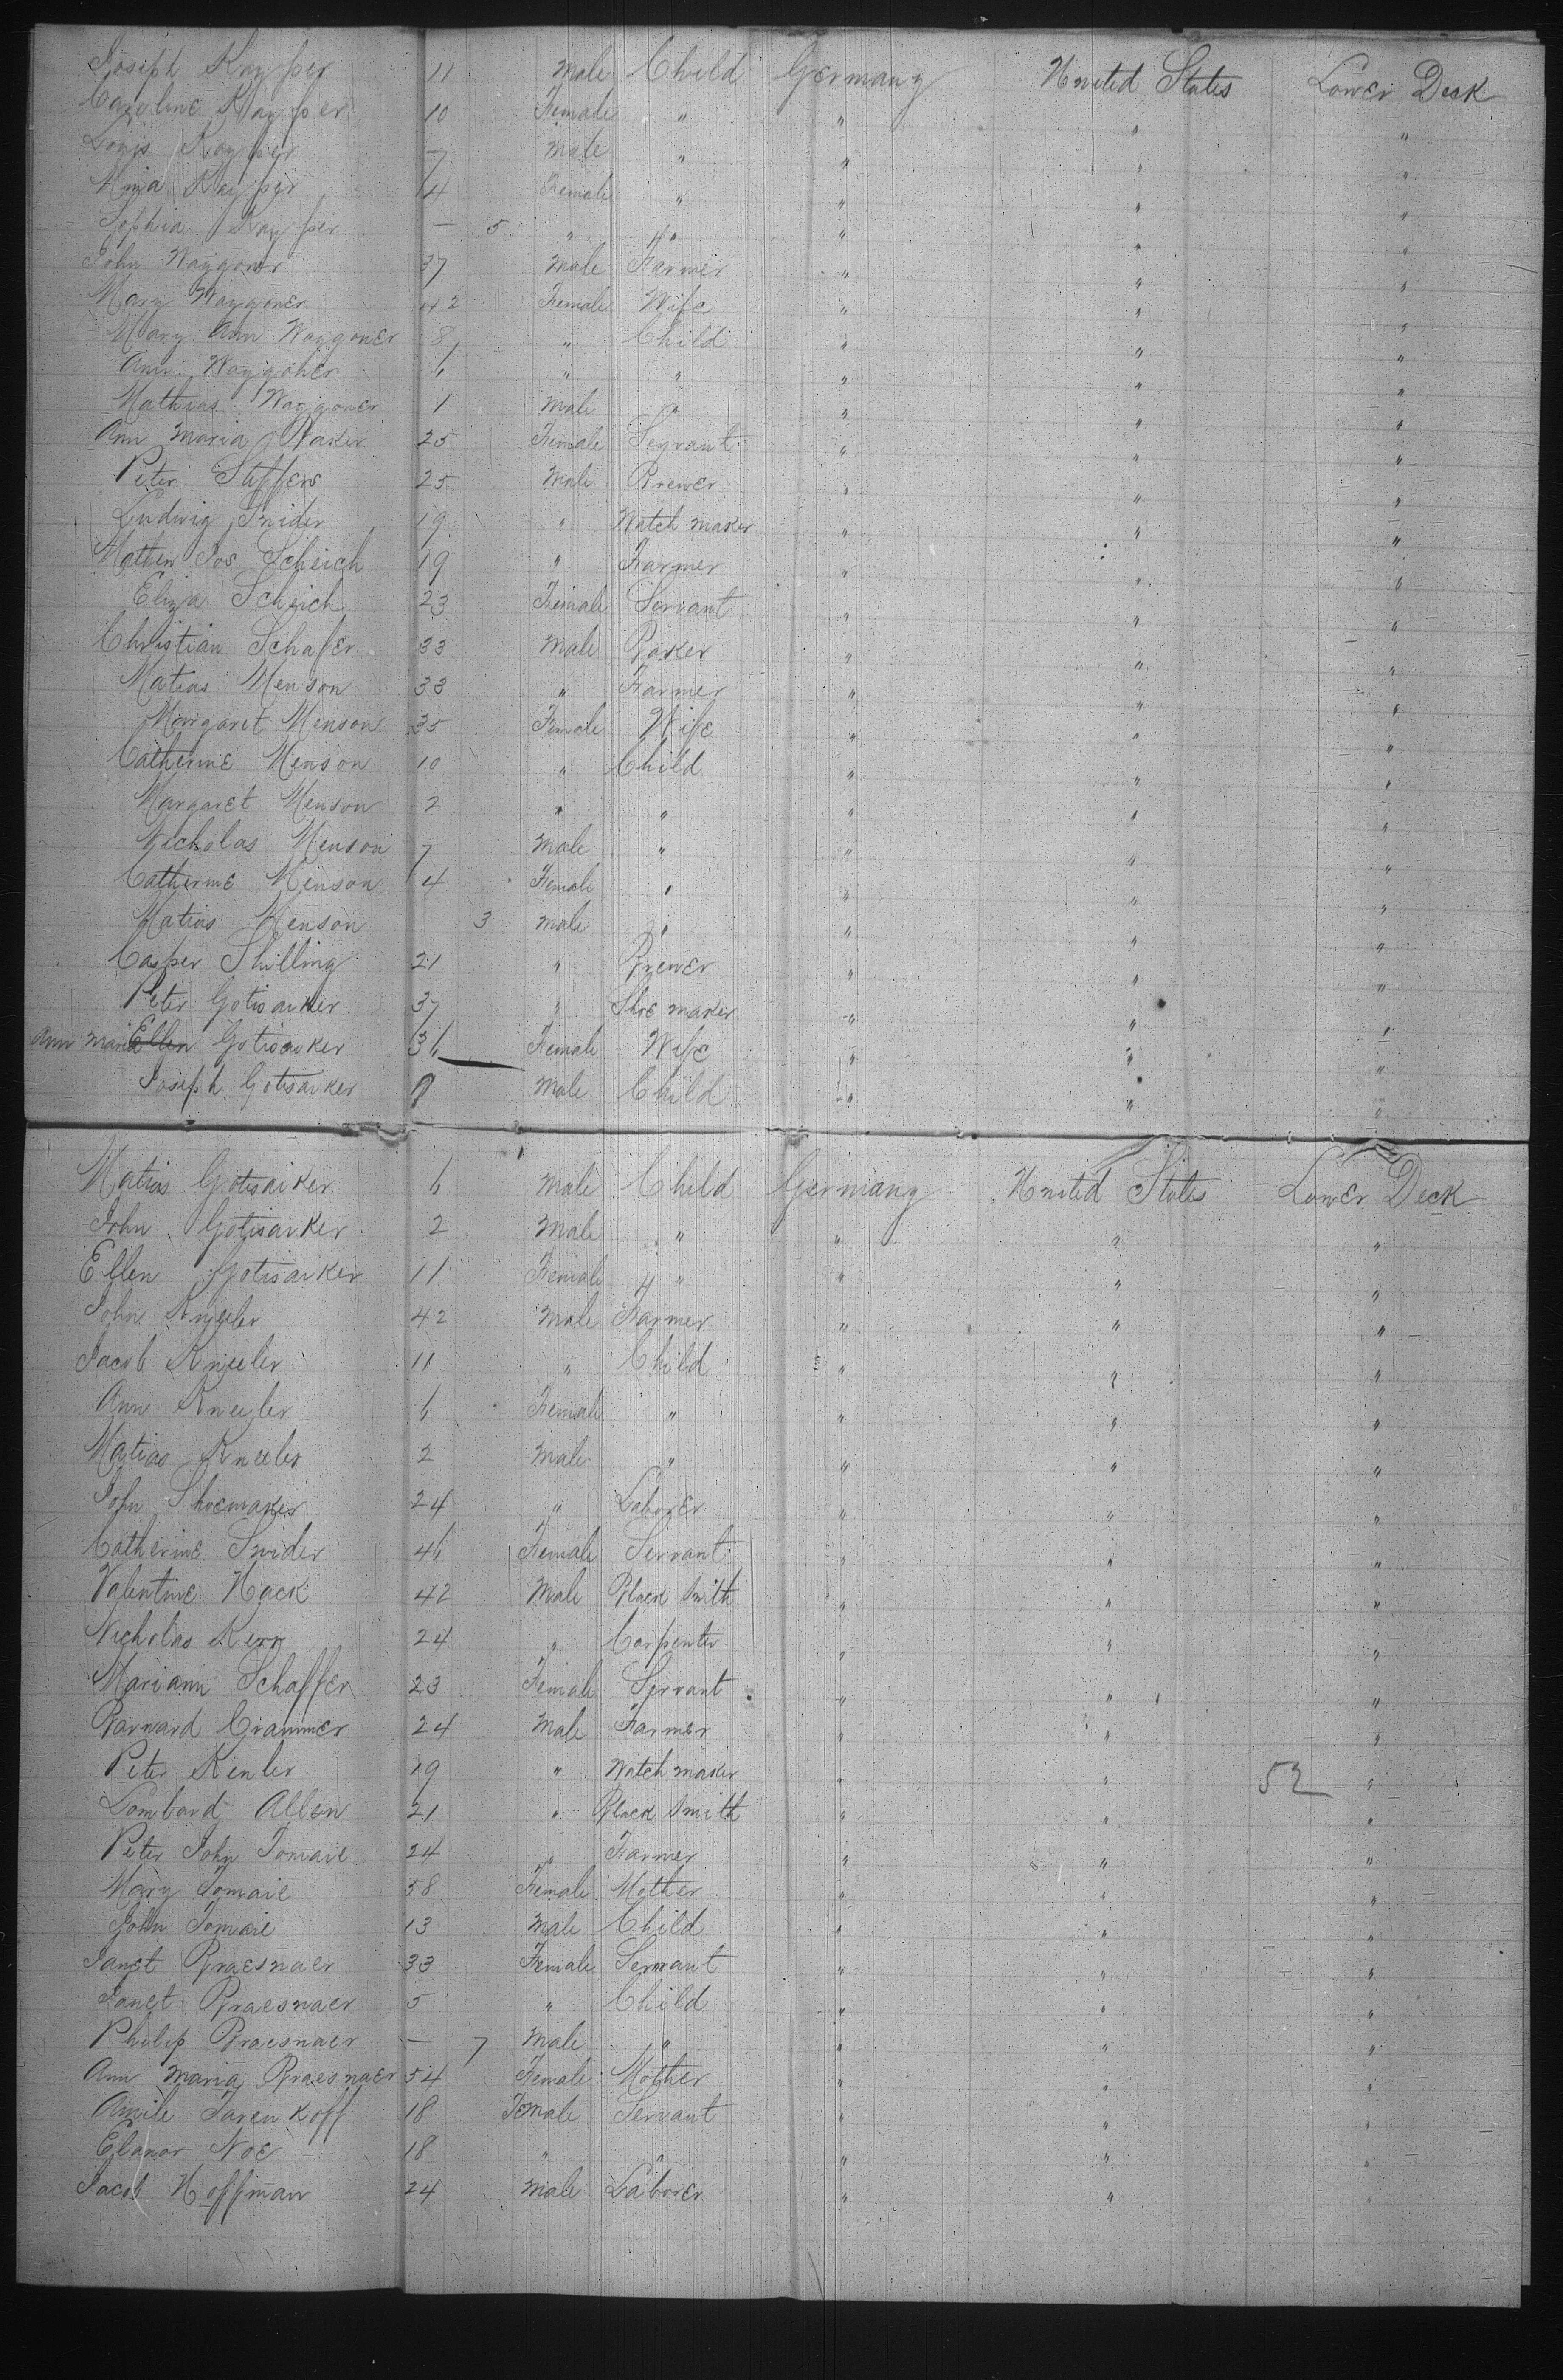 Joseph Kayper 11 Male Child Germany United States Lower Deck
Caroline Kayper 10 Female " " " "
Louis Kayper 7 Male " " " "
Kayper 4 Female " " " "
Sophia Kayper — 5 " " " " "
John Waygoner 37 Male Farmer " " "
Mary Waygoner 42 Female Wife " " "
Mary Ann Waygoner 8 " Child " " "
Ann Waygoner 6 " " " " "
Mathias Waggoner 1 Male " " " "
Ann Maria Baker 25 Female Servant " " "
Peter Steffers 25 Male Brewer " " "
Ludwig Snider 19 " Watch maker " " "
Mathew Jos Scheich 19 " Farmer " " "
Eliza Scheich 23 Female Servant " " "
Christian Schafer 33 Male Baker " " "
Matias Menson 33 " Farmer " " "
Margaret Menson 35 Female Wife " " "
Catherine Menson 10 " Child " " "
Margaret Menson 2 " " " " "
Nicholas Menson 7 Male " " " "
Catherine Menson 4 Female " " " "
Matias Menson 3 Male " " " "
Casper Shilling 21 " Brewer " " "
Peter Gotisarker 37 " Shoe maker " " "
Ann Maria Ellen Gotisarker 36 Female Wife " " "
Joseph Gotisarker Male Child " " "
Matias Gotisarker 6 Male Child Germany United States Lower Deck
John Gotisarker 2 Male " " " "
Ellen Gotisarker 11 Female " " " "
John Kneeler 42 Male Farmer " " "
Jacob Kneeler 11 " Child " " "
Ann Kneeler 6 Female " " " "
Matias Kneeler 2 Male " " " "
John Shoemaker 24 " Laborer " " "
Catherine Snider 46 Female Servant " " "
Valentine Hack 42 Male Black Smith " " "
Nicholas Kern 24 " Carpenter " " "
Mariann Schaffer 23 Female Servant " " "
Barnard Crammer 24 Male Farmer " " "
Peter Kenler 19 " Watch maker " " 52 "
Lombard Allen 21 " Black Smith " " "
Peter John Tomaie 24 " Farmer " " "
Mary Tomaie 58 Female Mother " " "
John Tomaie 13 Male Child " " "
Janet Braesnaer 33 Female Servant " " "
Janet Braesnaer 5 " Child " " "
Philip Braesnaer — 7 Male " " " "
Ann Maria Braesnaer 54 Female Mother " " "
Amile Tarenkoff 18 Female Servant " " "
Elanor Noe 18 " " " " "
Jacob Hoffman 24 Male Laborer " " "